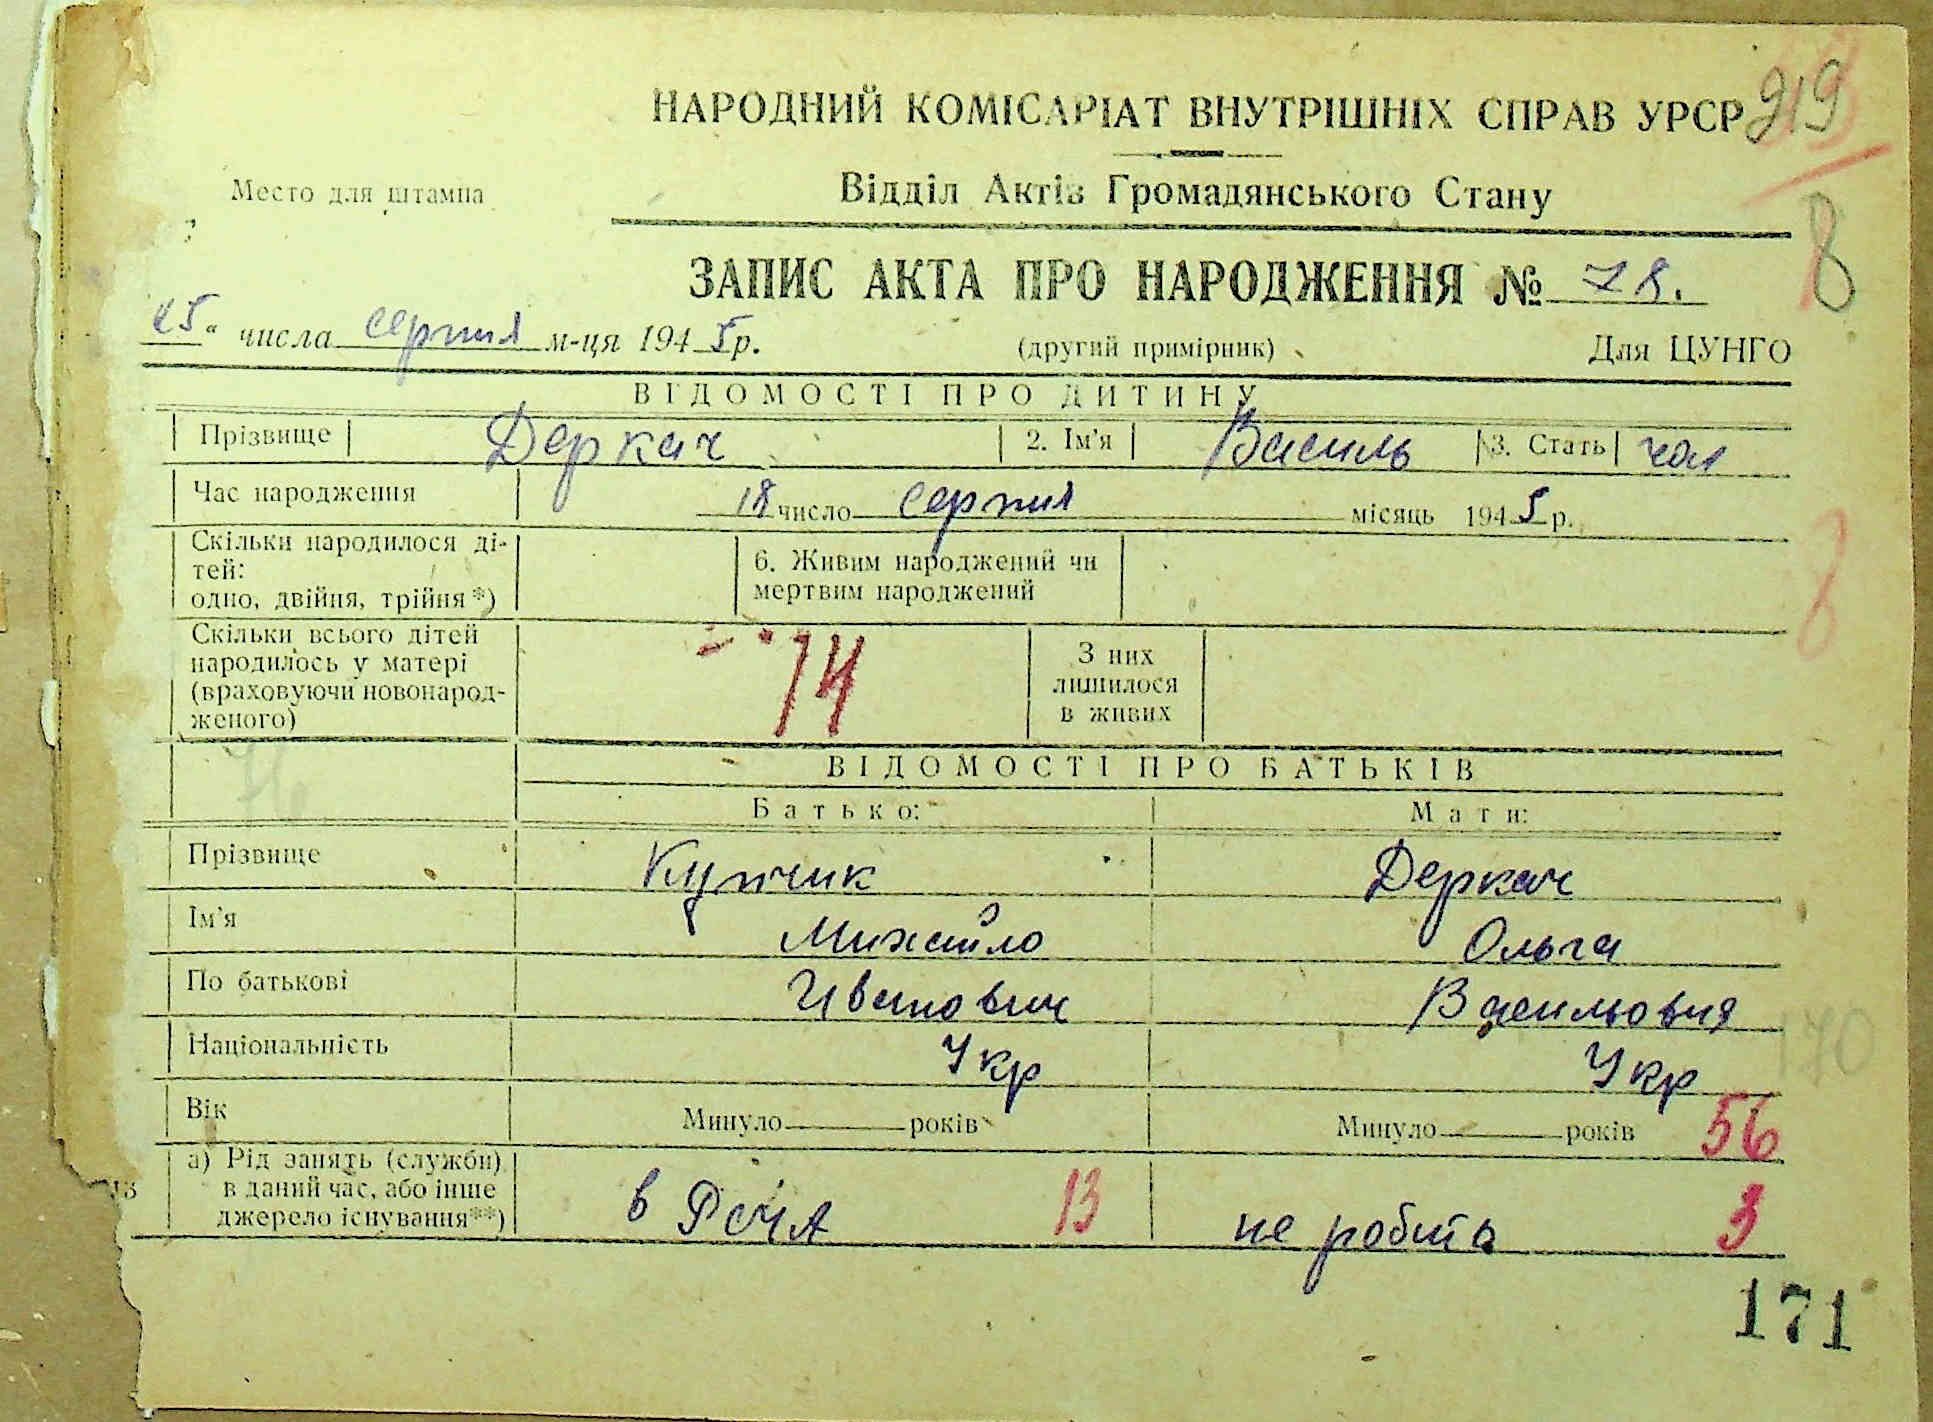 919
НАРОДНИЙ КОМІСАРІАТ ВНУТРІШНІХ СПРАВ УРСР
Место для штампа
Відділ Актів Громадянського Стану
8
ЗАПИС АКТА ПРО НАРОДЖЕННЯ № 78.
25 “ числа серпня м-ця 1945 р.
(другий примірник)
Для ЦУНГО
ВІДОМОСТІ ПРО ДИТИНУ
Прізвище Деркач 2. Ім'я Василь 3. Стать чол
Час народження 18 число серпня місяць 1945 р.
Скільки народилося ді-
тей:
одно, двійня, трійня*)
6. Живим народжений чи
мертвим народжений
8
Скільки всього дітей
народилось у матері
(враховуючи новонарод-
женого)
14
З них
лишилося
в живих
ВІДОМОСТІ ПРО БАТЬКІВ
Батько: Мати:
Прізвище Купчик Деркач
Ім'я Михайло Ольга
По батькові Иванович Василовня
170
Національність Укр Укр
Вік Минуло років Минуло років 56
а) Рід занять (служби)
в даний час, або інше
джерело існування**)
в РСЧА 13 не робита 3
171